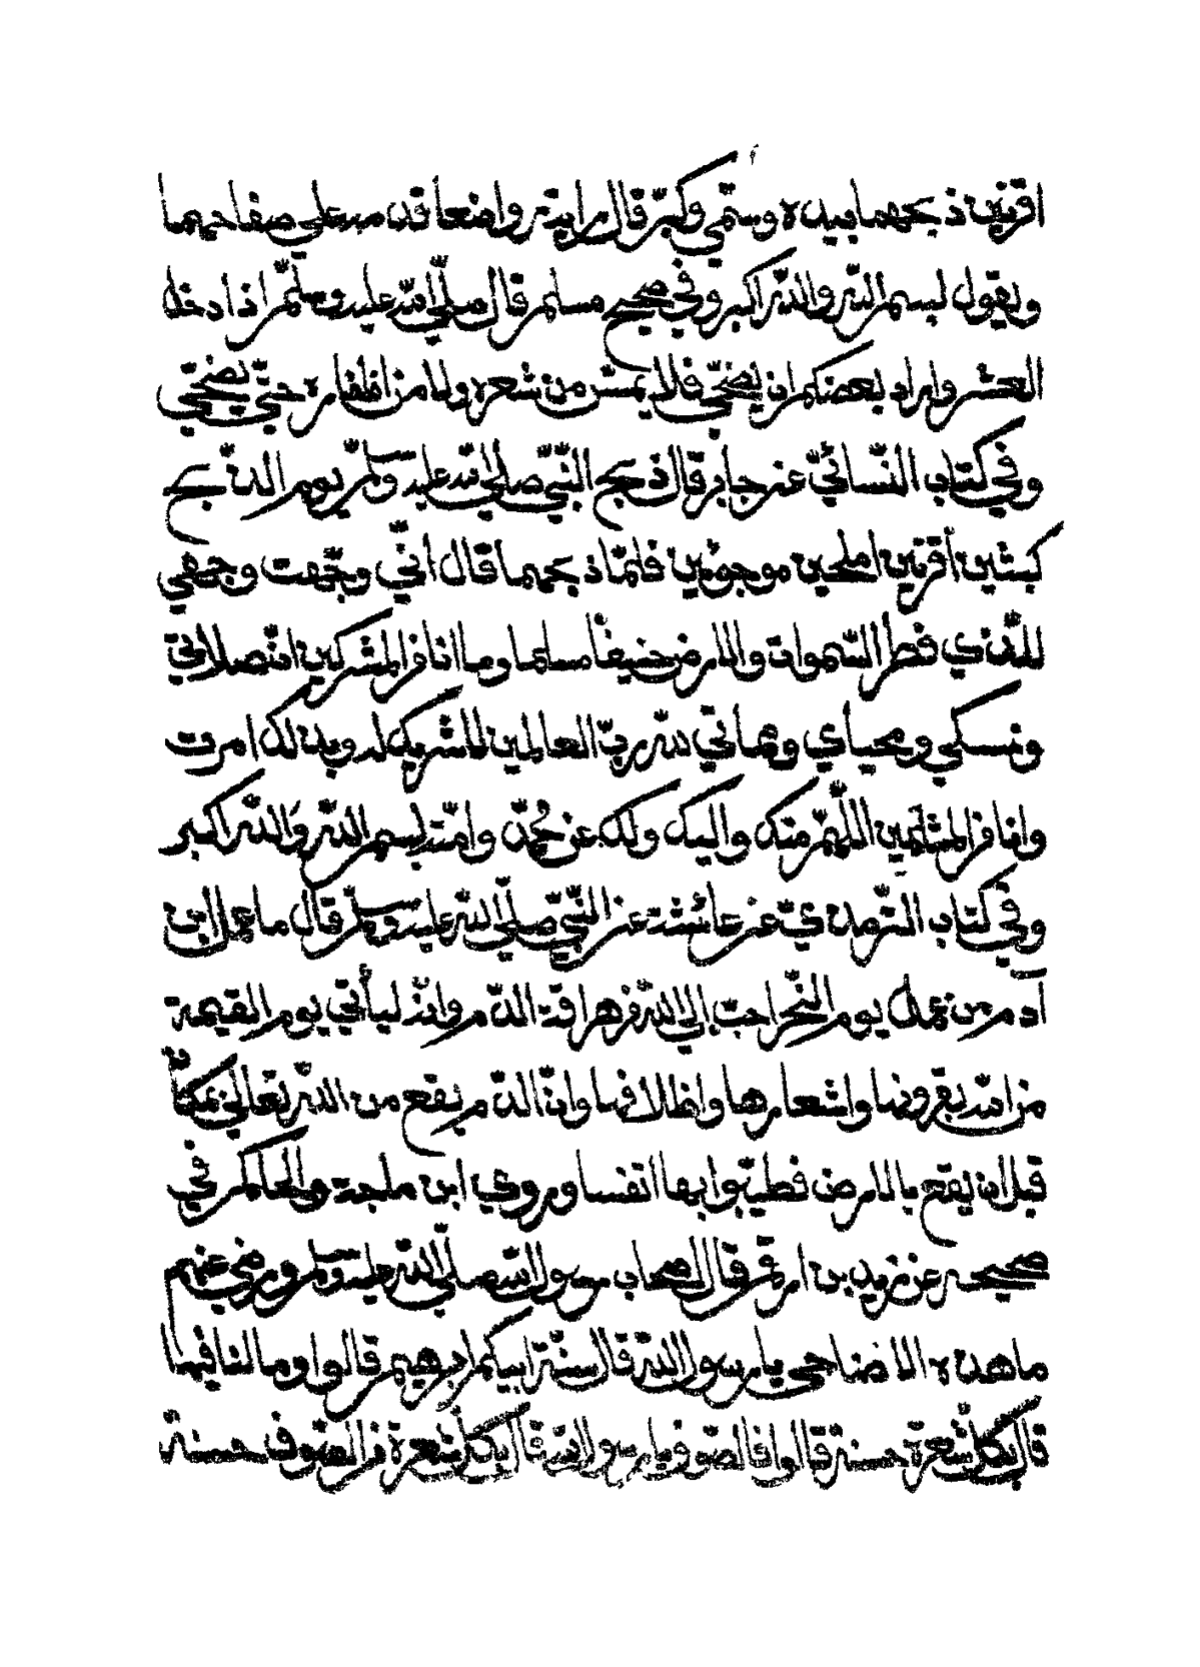 اقرنين ذبحهما بيده وسمّي وكبّر قال رايته واضعا قدمه علي صفاحهما
ويقول بسم اللّه واللّه اكبر وفي صحيح مسلم قال صلّي اللّه عليه وسلّم اذا دخل
العشر واراد بعضكم ان يضحّي فلا يمسّ من شعره ولا من اظفاره حتّي يضحّي
وفي كتاب النّسائيّ عن جابر قال ذبح النّبيّ صلّي اللّه عليه وسلم يوم الذبح
كبشين أقرنين املحين موجوئين فلمّا ذبحهما قال أنّي وجّهت وجهي
للّذي فطر السّموات والارض حنيفاً مسلما وما انا من المشركين انّ صلاتي
ونسكي ومحياي ومماتي للّه ربّ العالمين لا شريك له وبذلك امرت
وانا من المسلمين اللّهمّ منك واليك ولك عن محمّد وامّته بسم اللّه واللّه اكبر
وفي كتاب التّرمذيّ عن عائشة عن النّبيّ صلّي اللّه عليه وسلم قال ما عمل ابن
آدم من عمل يوم النّحر احبّ الي اللّه من هراقة الدّم وانّه ليأتي يوم القيمة
من امّه بقرونها واشعارها واظلافها وانّ الدّم يقع من اللّه تعالي بمكانٍ
قبل ان يقع بالارض فطيبوا بها انفسا وروي ابن ماجة والحاكم في
صحيحه عن زيد بن ارقم قال اصحاب رسول اللّه صلّي اللّه عليه وسلم ورضي عنهم
ما هذه الاضاحي يا رسول اللّه قال سنّة ابيكم ابرهيم قالوا وما لنا فيها
قال بكلّ شعرة حسنة قالوا فالصّوف يا رسول اللّه قال بكلّ شعرة من الصّوف حسنة